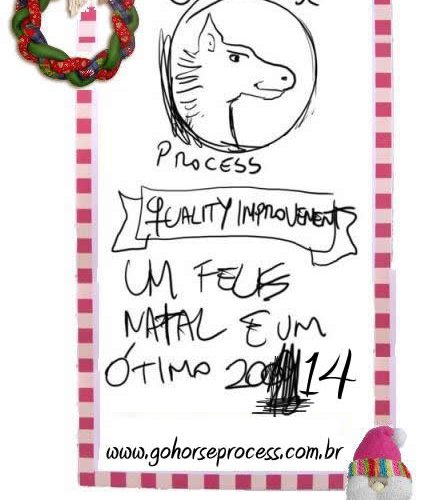 PROCESS
QUALITY IMPROVEMENT
UM FELIS
NATAL E UM
ÓTIMO 2014
www.gohorseprocess.com.br